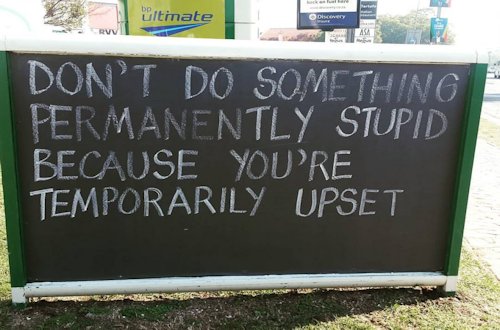 bp ultimate
Discovery
DON'T DO SOMETHING
PERMANENTLY STUPID
BECAUSE YOU'RE
TEMPORARILY UPSET